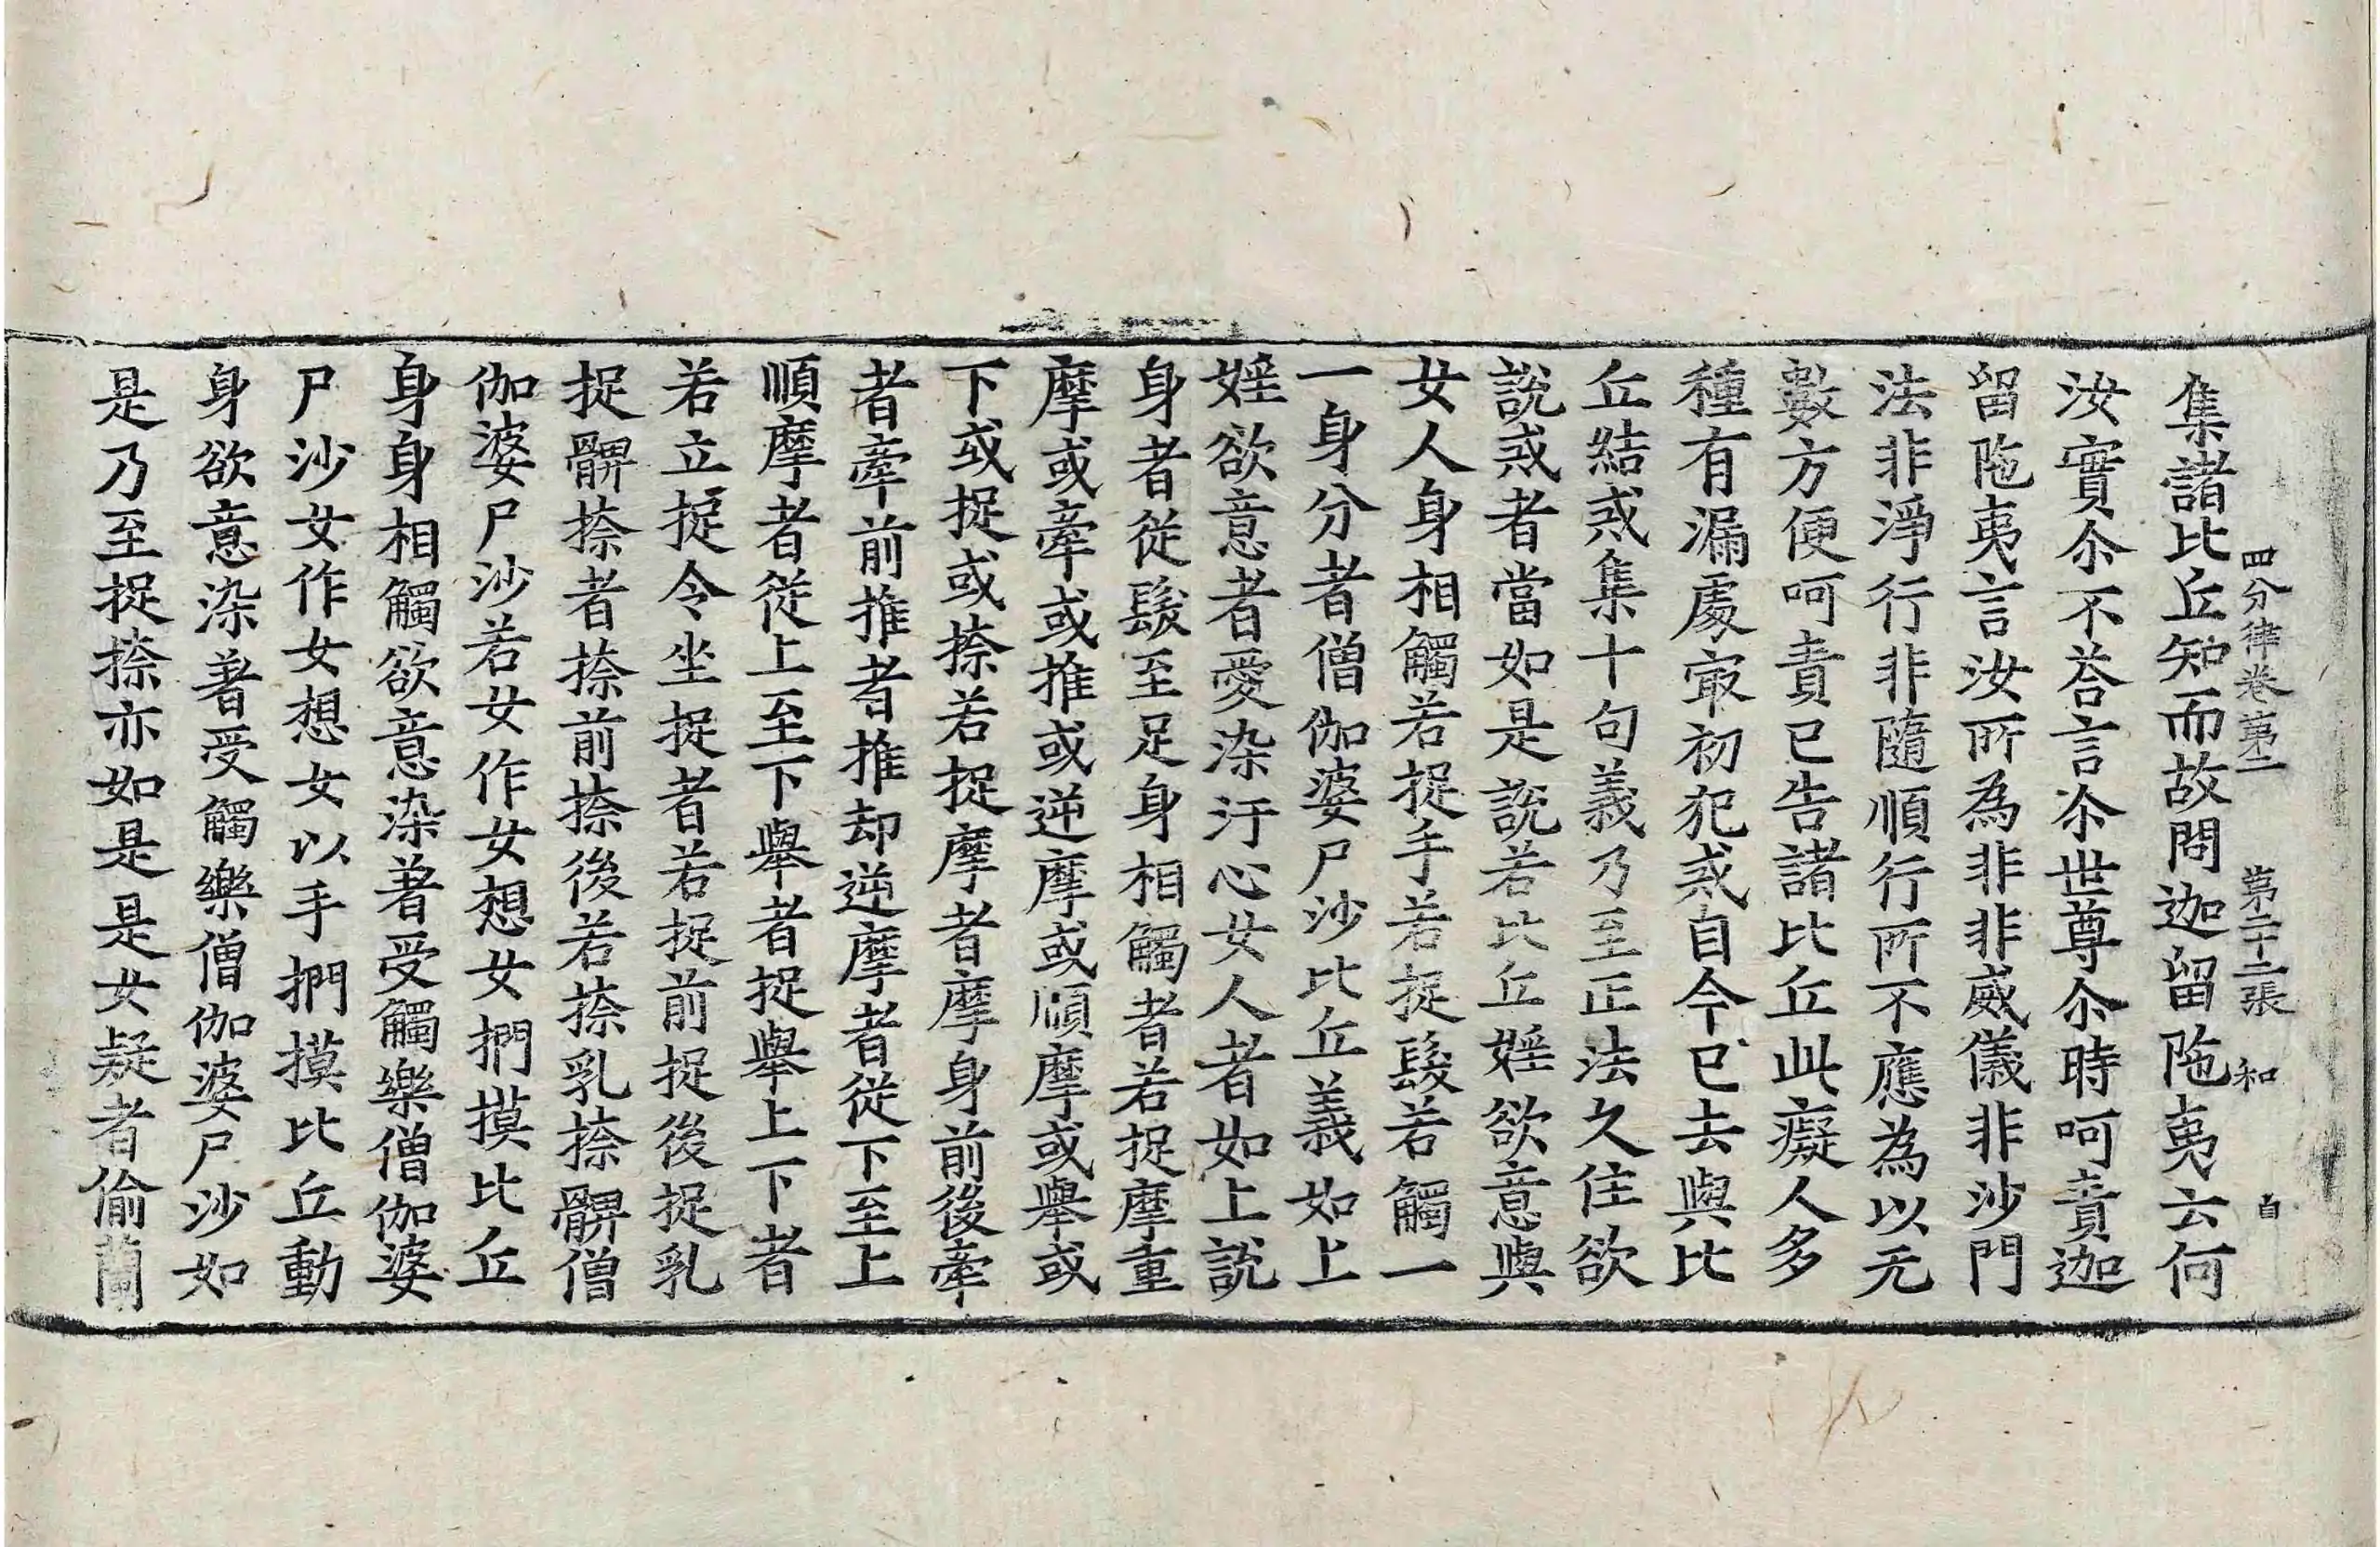 四分律卷第二 第二十二張 和 自
集諸比丘知而故問迦留陁夷云何
汝實尒不荅言尒世尊尒時呵責迦
留陁夷言汝所為非非威儀非沙門
法非淨行非隨順行所不應為以无
數方便呵責已告諸比丘此癡人多
種有漏處㝡初犯戒自今已去與比
丘結戒集十句義乃至正法久住欲
說戒者當如是說若比丘婬欲意與
女人身相觸若捉手若捉髮若觸一
一身分者僧伽婆尸沙比丘義如上
婬欲意者愛染汙心女人者如上說
身者從髮至足身相觸者若捉摩重
摩或牽或推或逆摩或順摩或舉或
下或捉或捺若捉摩者摩身前後牽
者牽前推者推却逆摩者從下至上
順摩者從上至下舉者捉舉上下者
若立捉令坐捉者若捉前捉後捉乳
捉髀捺者捺前捺後若捺乳捺髀僧
伽婆尸沙若女作女想女捫摸比丘
身身相觸欲意染著受觸樂僧伽婆
尸沙女作女想女以手捫摸比丘動
身欲意染著受觸樂僧伽婆尸沙如
是乃至捉捺亦如是是女疑者偷蘭